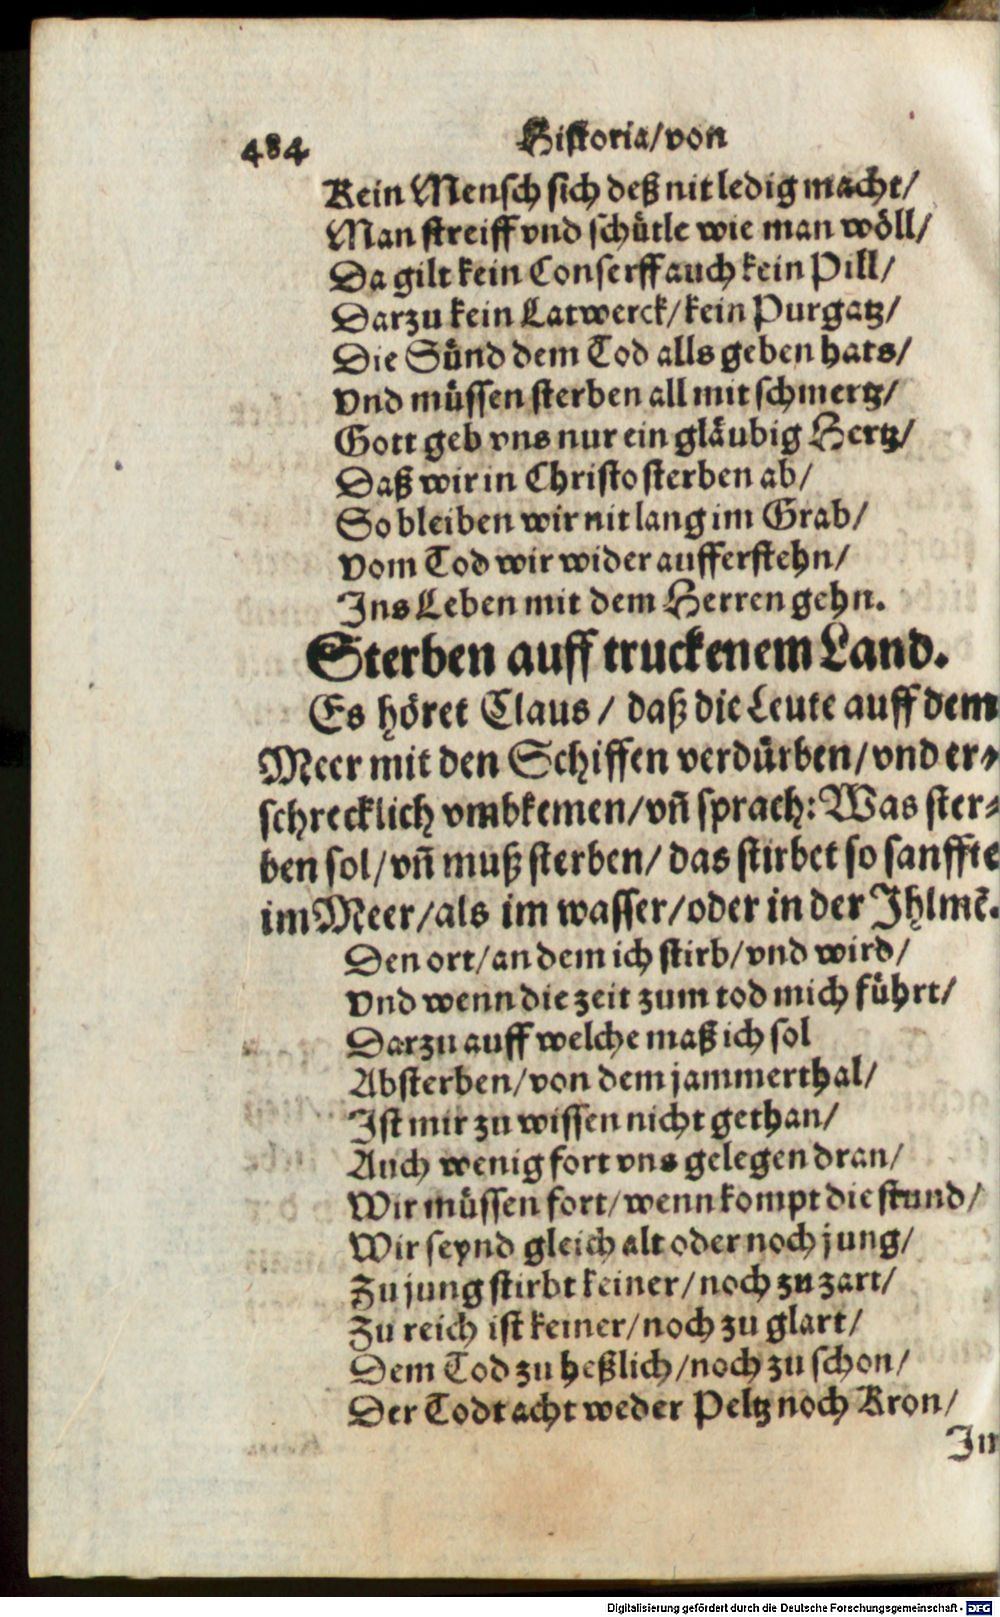 484 Historia/von
Kein Mensch sich deß nit ledig macht/
Man streiff vnd schütle wie man wöll/
Da gilt kein Conserff auch kein Pill/
Darzu kein Latwerck/kein Purgatz/
Die Sünd dem Tod alls geben hats/
Vnd müssen sterben all mit schmertz/
Gott geb vns nur ein gläubig Hertz/
Daß wir in Christo sterben ab/
So bleiben wir nit lang im Grab/
Vom Tod wir wider aufferstehn/
Ins Leben mit dem Herren gehn.
Sterben auff truckenem Land.
Es höret Claus / daß die Leute auff dem
Meer mit den Schiffen verdürben/vnd er-
schrecklich vmbkemen/vñ sprach: Was ster-
ben sol/vñ muß sterben/ das stirbet so sanffte
im Meer/als im wasser/oder in der Ihlmẽ.
Den ort/an dem ich stirb/vnd wird/
Vnd wenn die zeit zum tod mich führt/
Darzu auff welche maß ich sol
Absterben/von dem jammerthal/
Ist mir zu wissen nicht gethan/
Auch wenig fort vns gelegen dran/
Wir müssen fort/wenn kompt die stund/
Wir seynd gleich alt oder noch jung/
Zu jung stirbt keiner/noch zu zart/
Zu reich ist keiner/noch zu glart/
Dem Tod zu heßlich/noch zu schon/
Der Todt acht weder Peltz noch Kron/
Im
Digitalisierung gefördert durch die Deutsche Forschungsgemeinschaft - DFG